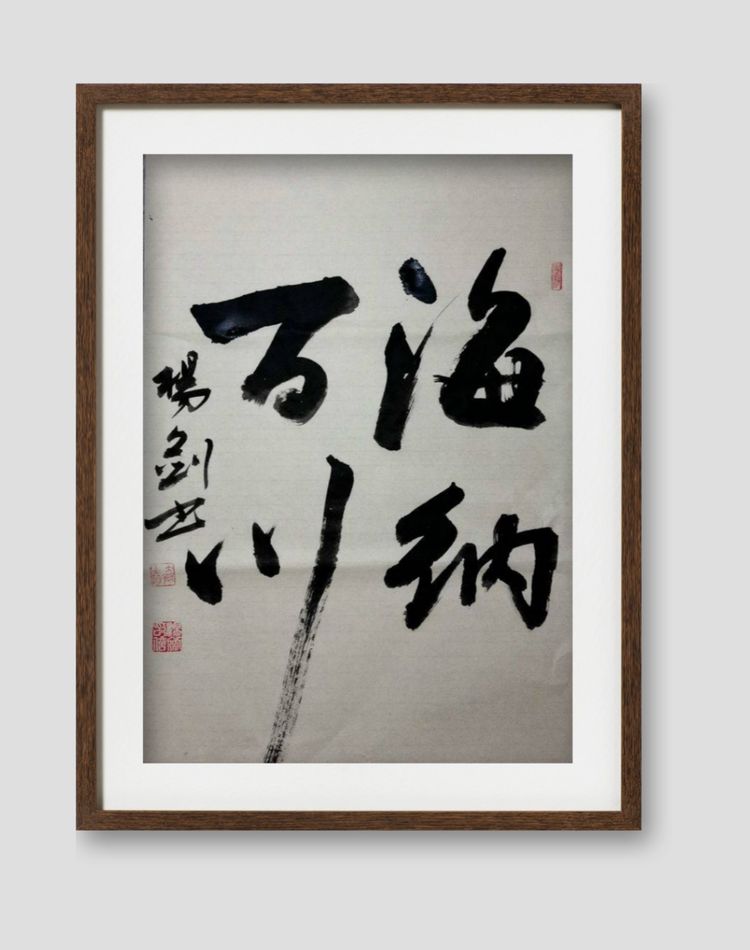 海纳
百川
楊剑书